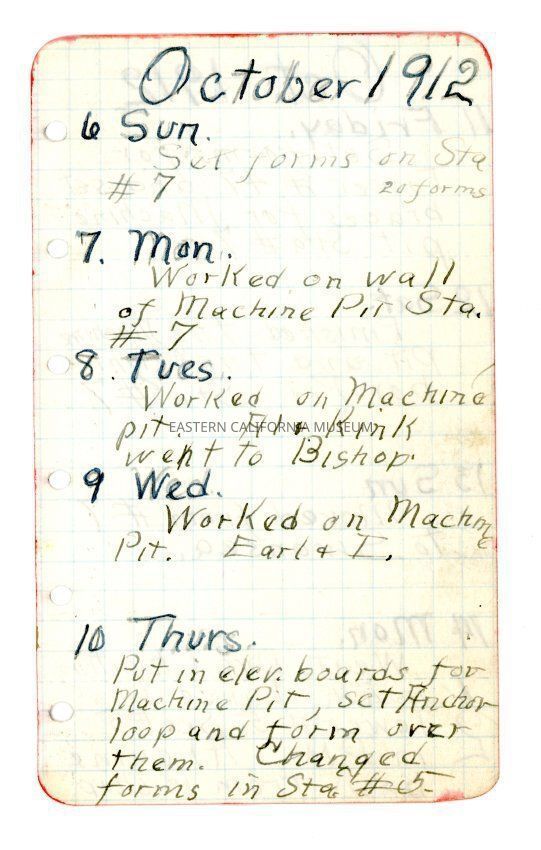 October 1912
6 Sun.
Set forms on Sta
# 7 20 forms
7. Mon.
Worked on wall
of Machine Pit Sta.
# 7
8. Tues.
Worked on Machine
pit. Kink
EASTERN CALIFORNIA MUSEUM
went to Bishop.
9 Wed.
Worked on Machine
Pit. Earl & I.
10 Thurs.
Put in elev. boards for
Machine Pit, set Anchor
loop and form over
them. Changed
forms in Sta # 5-